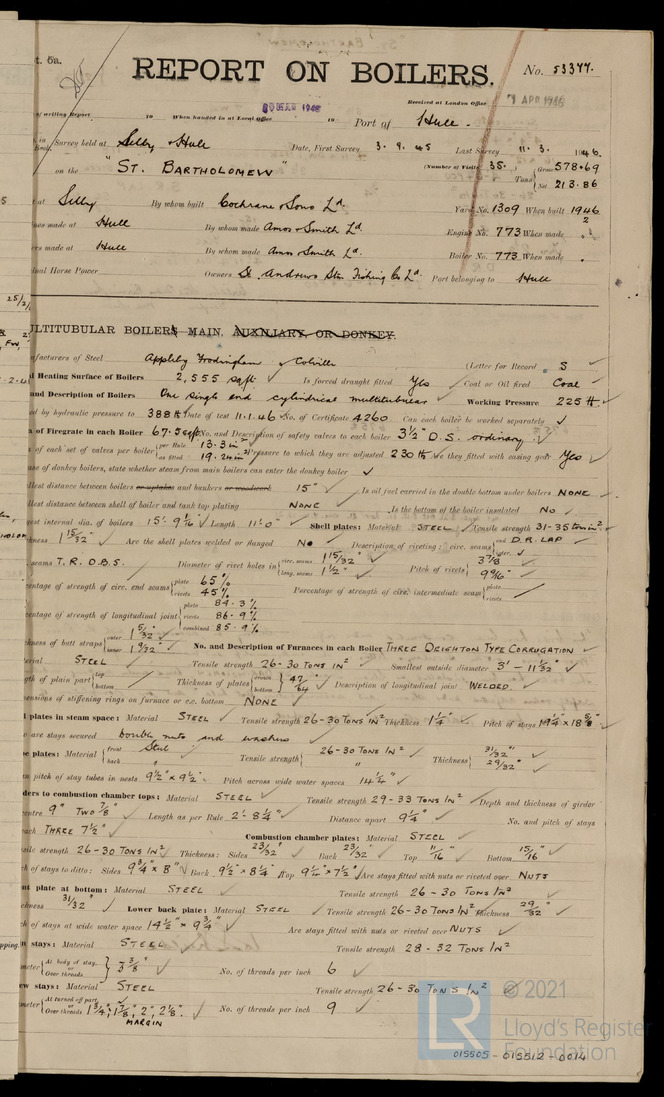 t. 5a.
REPORT ON BOILERS.
No. 53377.
of writing Report 19 When handed in at Local Office MAR 1946 19 Port of Hull.
Received at London Office APR 1946
Survey held at Selby & Hull Date, First Survey 3. 9. 45 Last Survey 11. 3. 1946.
on the "ST. BARTHOLOMEW" (Number of Visits 35.) Tons Gross 578.69 Net 213.86
at Selby By whom built Cochrane & Sons Ld. Yard No. 1309 When built 1946 2
nes made at Hull By whom made Amos & Smith Ld. Engine No. 773 When made
rs made at Hull By whom made Amos & Smith Ld. Boiler No. 773 When made
nal Horse Power Owners St. Andrews Stm Fishing Co Ld. Port belonging to Hull
ULTITUBULAR BOILERS MAIN, AUXILIARY, OR DONKEY.
nufacturers of Steel Appleby Frodingham & Colville (Letter for Record S
l Heating Surface of Boilers 2,555 sq ft. Is forced draught fitted Yes Coal or Oil fired Coal
and Description of Boilers One single end cylindrical multitubular Working Pressure 225 lb.
ed by hydraulic pressure to 388 lb Date of test 11.1.46 No. of Certificate 4260 Can each boiler be worked separately
of Firegrate in each Boiler 67.5 sq ft. No. and Description of safety valves to each boiler 3½" D.S. ordinary
of each set of valves per boiler per Rule 13.3 in² as fitted 19.24 in² Pressure to which they are adjusted 230 lb Are they fitted with easing gear Yes
se of donkey boilers, state whether steam from main boilers can enter the donkey boiler
llest distance between boilers or uptakes and bunkers or woodwork 15" Is oil fuel carried in the double bottom under boilers NONE
llest distance between shell of boiler and tank top plating NONE Is the bottom of the boiler insulated No
est internal dia. of boilers 15'- 9 1/16" Length 11'-0" Shell plates: Material STEEL Tensile strength 31-35 tons in²
kness 1 15/32" Are the shell plates welded or flanged No Description of riveting: circ. seams end D.R. LAP inter.
seams T.R. D.B.S. Diameter of rivet holes in circ. seams 1 15/32" long. seams 1½" Pitch of rivets 3 7/8" 9 9/16"
centage of strength of circ. end seams plate 65% rivets 45% Percentage of strength of circ. intermediate seam plate rivets
centage of strength of longitudinal joint plate 84.3% rivets 86.9% combined 85.9%
kness of butt straps outer 1 5/32" inner 1 9/32" No. and Description of Furnaces in each Boiler THREE DEIGHTON TYPE CORRUGATION
erial STEEL Tensile strength 26-30 TONS IN² Smallest outside diameter 3' - 11 1/32"
gth of plain part top bottom Thickness of plates crown bottom 47/64" Description of longitudinal joint WELDED
ensions of stiffening rings on furnace or c.c. bottom NONE
l plates in steam space: Material STEEL Tensile strength 26-30 TONS IN² Thickness 1¼" Pitch of stays 19¼" x 18 5/8"
are stays secured Double nuts and washers
e plates: Material front Steel back " Tensile strength 26-30 TONS IN² " Thickness 31/32" 29/32"
n pitch of stay tubes in nests 9½" x 9½" Pitch across wide water spaces 14¼"
ders to combustion chamber tops: Material STEEL Tensile strength 29-33 TONS IN² Depth and thickness of girder
entre 9" TWO 7/8" Length as per Rule 2'- 8¼" Distance apart 9¼" No. and pitch of stays
ach THREE 7½" Combustion chamber plates: Material STEEL
sile strength 26-30 TONS IN² Thickness: Sides 23/32" Back 23/32" Top 11/16" Bottom 15/16"
h of stays to ditto: Sides 9¾" x 8" Back 9½" x 8¼" Top 9¼" x 7½" Are stays fitted with nuts or riveted over NUTS
nt plate at bottom: Material STEEL Tensile strength 26 - 30 TONS IN²
ckness 31/32" Lower back plate: Material STEEL Tensile strength 26-30 TONS IN² Thickness 29/32"
h of stays at wide water space 14½" x 9¾" Are stays fitted with nuts or riveted over NUTS
n stays: Material STEEL Tensile strength 28 - 32 TONS IN²
meter At body of stay, or Over threads 3 3/8" No. of threads per inch 6
ew stays: Material STEEL Tensile strength 26-30 TONS IN²
meter At turned off part, or Over threads 1¾", 1 7/8", 2", 2 1/8". No. of threads per inch 9
MARGIN
LR © 2021
Lloyd's Register
Foundation
015505 - 015512 - 0014